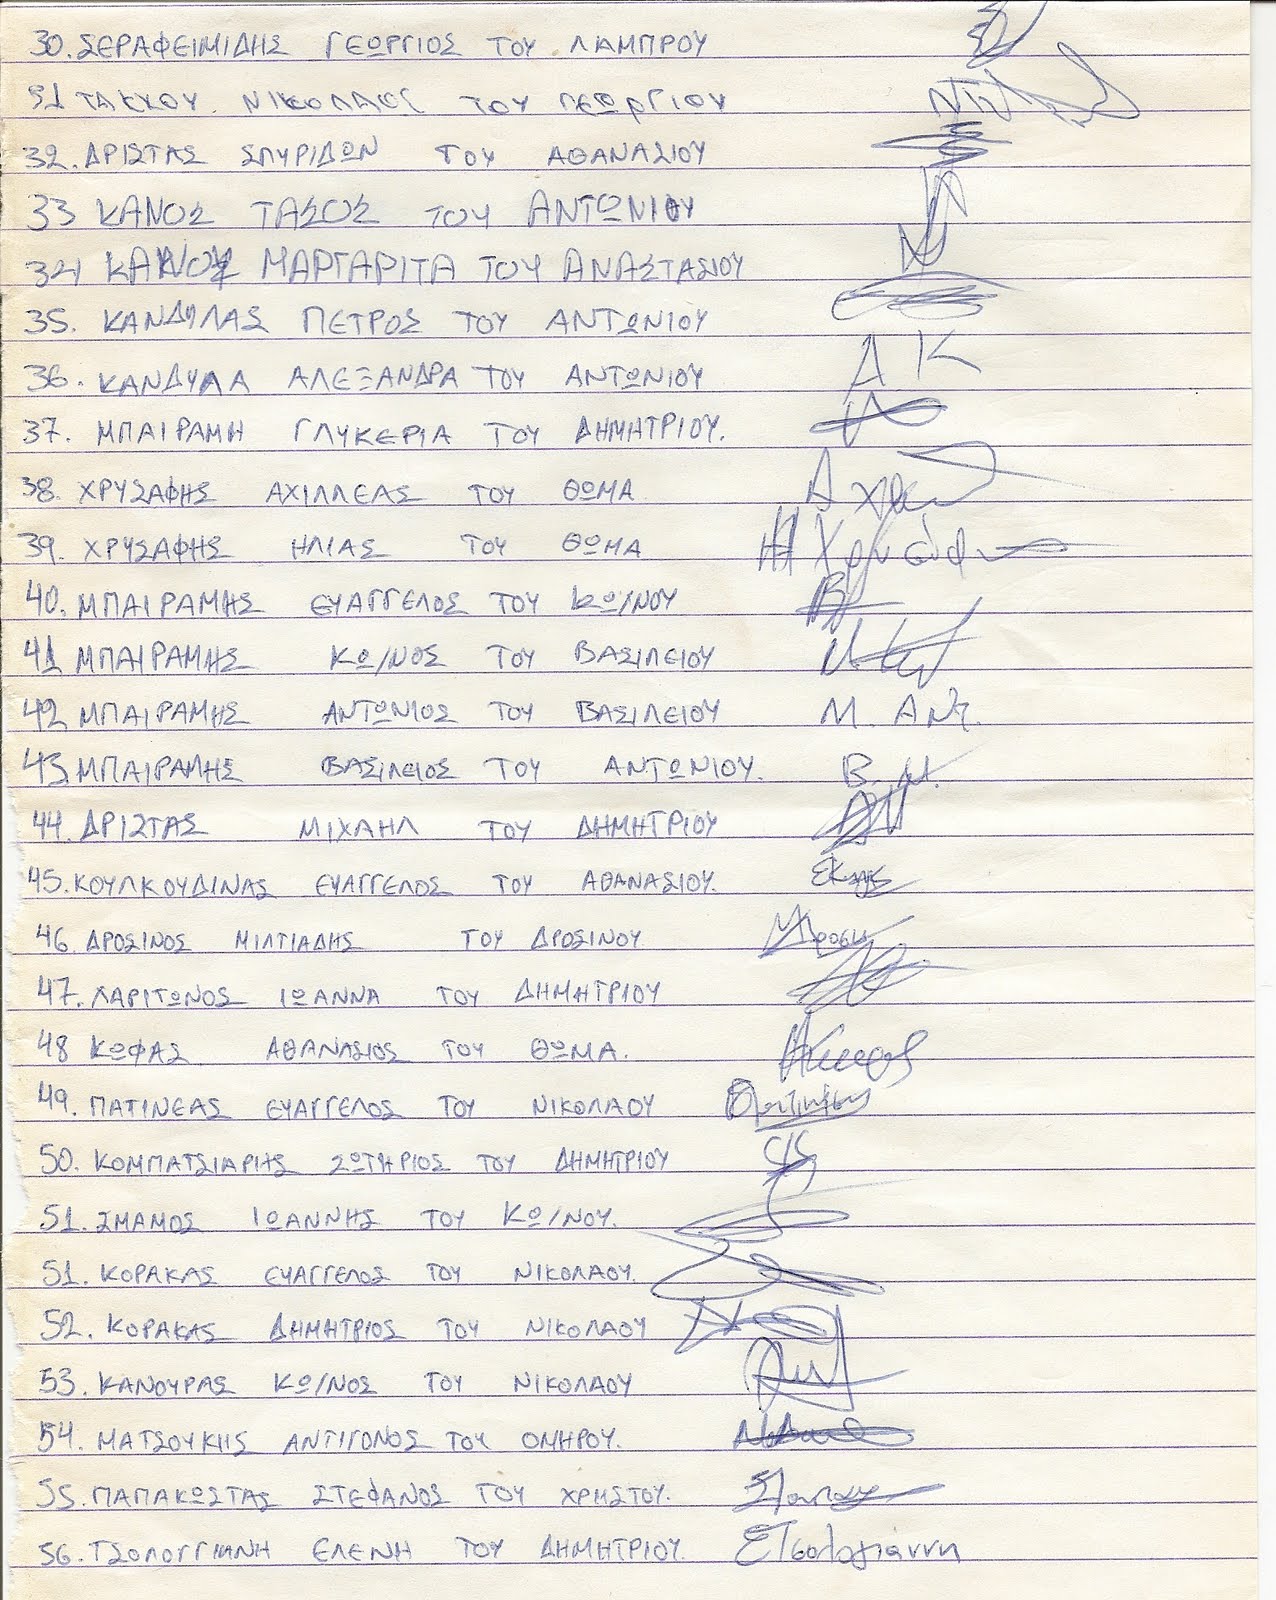 30. ΣΕΡΑΦΕΙΜΙΔΗΣ ΓΕΩΡΓΙΟΣ ΤΟΥ ΛΑΜΠΡΟΥ
31 ΤΑΚΚΟΥ. ΝΙΚΟΛΑΟΣ ΤΟΥ ΓΕΩΡΓΙΟΥ
32. ΔΡΙΣΤΑΣ ΣΠΥΡΙΔΩΝ ΤΟΥ ΑΘΑΝΑΣΙΟΥ
33 ΚΑΝΟΣ ΤΑΣΟΣ ΤΟΥ ΑΝΤΩΝΙΟΥ
34 ΚΑΝΟΥ ΜΑΡΓΑΡΙΤΑ ΤΟΥ ΑΝΑΣΤΑΣΙΟΥ
35. ΚΑΝΔΥΛΑΣ ΠΕΤΡΟΣ ΤΟΥ ΑΝΤΩΝΙΟΥ
36. ΚΑΝΔΥΛΑ ΑΛΕΞΑΝΔΡΑ ΤΟΥ ΑΝΤΩΝΙΟΥ Α Κ
37. ΜΠΑΙΡΑΜΗ ΓΛΥΚΕΡΙΑ ΤΟΥ ΔΗΜΗΤΡΙΟΥ.
38. ΧΡΥΣΑΦΗΣ ΑΧΙΛΛΕΑΣ ΤΟΥ ΘΩΜΑ
39. ΧΡΥΣΑΦΗΣ ΗΛΙΑΣ ΤΟΥ ΘΩΜΑ
40. ΜΠΑΙΡΑΜΗΣ ΕΥΑΓΓΕΛΟΣ ΤΟΥ ΚΩ/ΝΟΥ
41 ΜΠΑΙΡΑΜΗΣ ΚΩ/ΝΟΣ ΤΟΥ ΒΑΣΙΛΕΙΟΥ
42 ΜΠΑΙΡΑΜΗΣ ΑΝΤΩΝΙΟΣ ΤΟΥ ΒΑΣΙΛΕΙΟΥ Μ. Αντ.
43. ΜΠΑΙΡΑΜΗΣ ΒΑΣΙΛΕΙΟΣ ΤΟΥ ΑΝΤΩΝΙΟΥ. Β. Μ.
44. ΔΡΙΣΤΑΣ ΜΙΧΑΗΛ ΤΟΥ ΔΗΜΗΤΡΙΟΥ
45. ΚΟΥΛΚΟΥΔΙΝΑΣ ΕΥΑΓΓΕΛΟΣ ΤΟΥ ΑΘΑΝΑΣΙΟΥ.
46. ΔΡΟΣΙΝΟΣ ΜΙΛΤΙΑΔΗΣ ΤΟΥ ΔΡΟΣΙΝΟΥ
47. ΧΑΡΙΤΩΝΟΣ ΙΩΑΝΝΑ ΤΟΥ ΔΗΜΗΤΡΙΟΥ
48 ΚΩΦΑΣ ΑΘΑΝΑΣΙΟΣ ΤΟΥ ΘΩΜΑ.
49. ΠΑΤΙΝΕΑΣ ΕΥΑΓΓΕΛΟΣ ΤΟΥ ΝΙΚΟΛΑΟΥ
50. ΚΟΜΠΑΤΣΙΑΡΗΣ ΣΩΤΗΡΙΟΣ ΤΟΥ ΔΗΜΗΤΡΙΟΥ
51. ΣΜΑΜΟΣ ΙΩΑΝΝΗΣ ΤΟΥ ΚΩ/ΝΟΥ.
51. ΚΟΡΑΚΑΣ ΕΥΑΓΓΕΛΟΣ ΤΟΥ ΝΙΚΟΛΑΟΥ.
52. ΚΟΡΑΚΑΣ ΔΗΜΗΤΡΙΟΣ ΤΟΥ ΝΙΚΟΛΑΟΥ
53. ΚΑΝΟΥΡΑΣ ΚΩ/ΝΟΣ ΤΟΥ ΝΙΚΟΛΑΟΥ
54. ΜΑΤΣΟΥΚΗΣ ΑΝΤΙΓΟΝΟΣ ΤΟΥ ΟΜΗΡΟΥ.
55. ΠΑΠΑΚΩΣΤΑΣ ΣΤΕΦΑΝΟΣ ΤΟΥ ΧΡΗΣΤΟΥ.
56. ΤΣΟΛΟΓΓΙΑΝΗ ΕΛΕΝΗ ΤΟΥ ΔΗΜΗΤΡΙΟΥ. ΕΤσολογιάννη